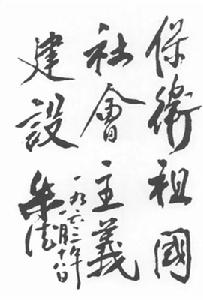 保衞祖國
社會主義
建設
朱德
一九六三年
八月十八日